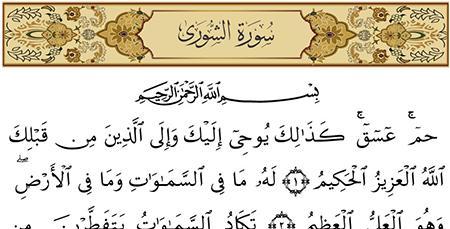 سُورَةُ الشُّورَىٰ
بِسْمِ ٱللَّهِ ٱلرَّحْمَٰنِ ٱلرَّحِيمِ
حمٓ ۚ عٓسٓقٓ ۚ كَذَٰلِكَ يُوحِىٓ إِلَيْكَ وَإِلَى ٱلَّذِينَ مِن قَبْلِكَ
ٱللَّهُ ٱلْعَزِيزُ ٱلْحَكِيمُ ﴿١﴾ لَهُۥ مَا فِى ٱلسَّمَٰوَٰتِ وَمَا فِى ٱلْأَرْضِ ۖ
وَهُوَ ٱلْعَلِىُّ ٱلْعَظِيمُ ﴿٢﴾ تَكَادُ ٱلسَّمَٰوَٰتُ يَتَفَطَّرْنَ مِن